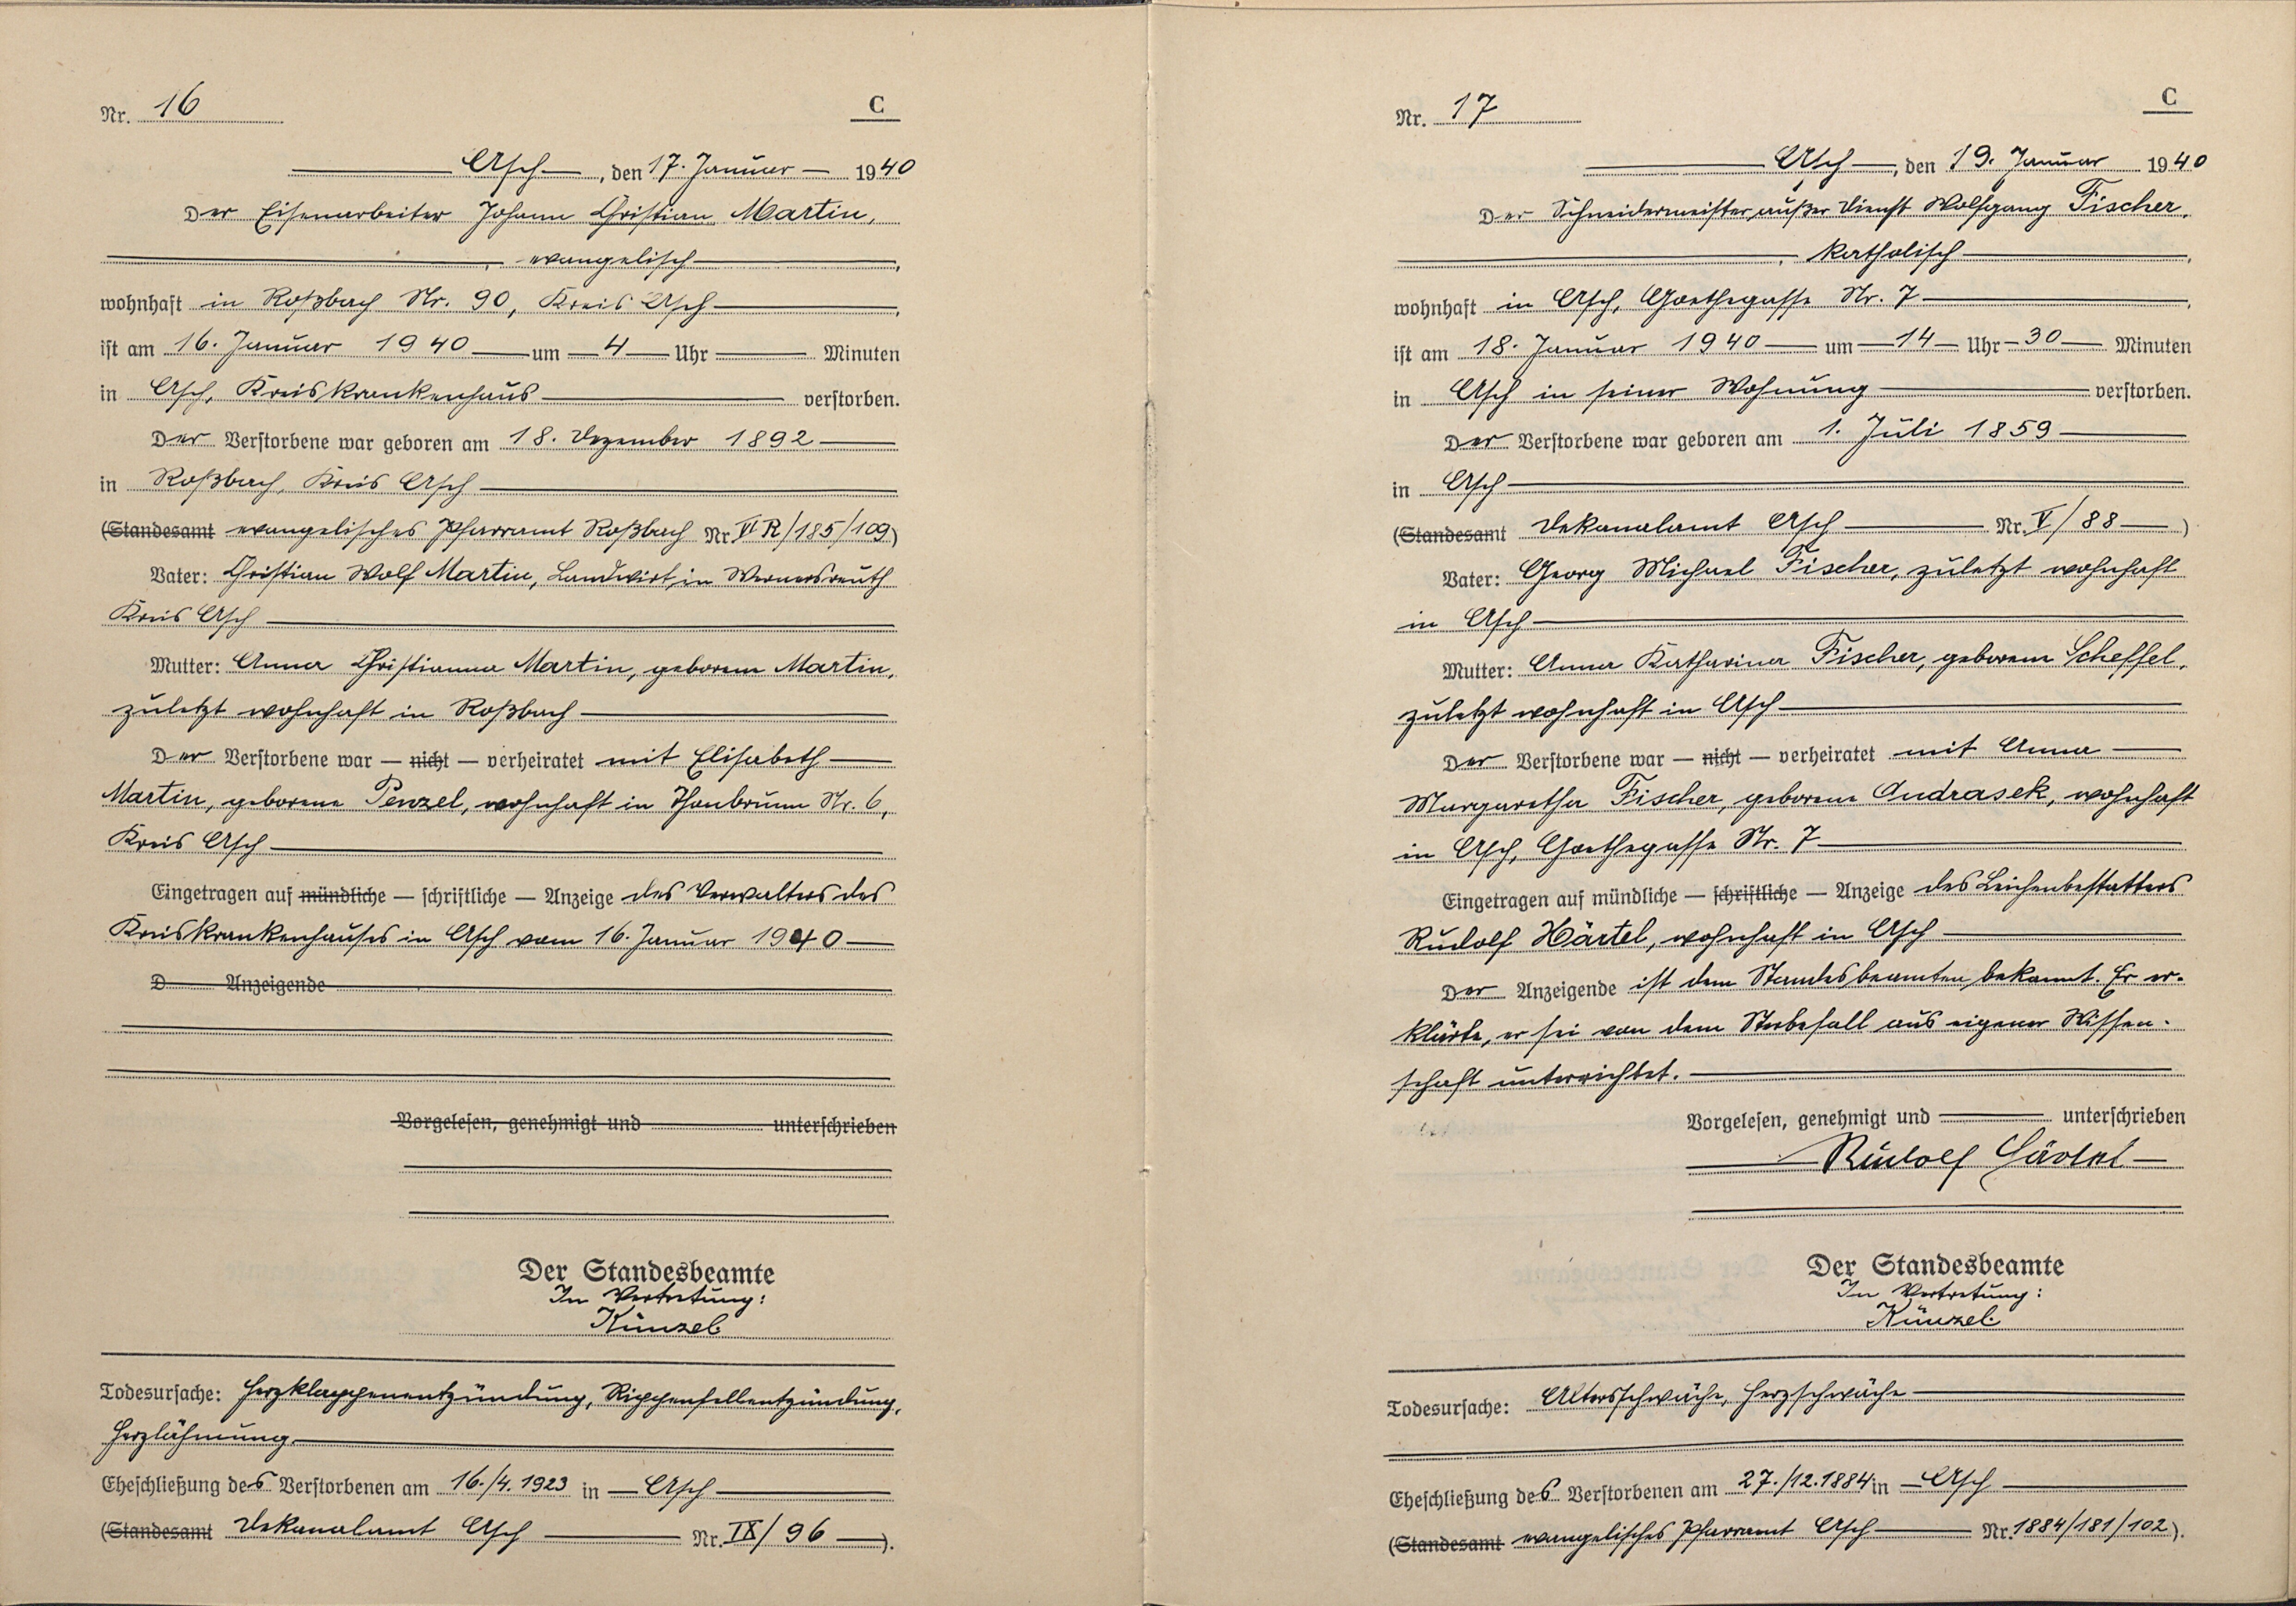 Nr. 16
C
Asch, den 17. Januar 1940
Der Eisenarbeiter Johann Christian Martin,
, evangelisch,
wohnhaft in Roßbach Nr. 90, Kreis Asch,
ist am 16. Januar 1940 um 4 Uhr Minuten
in Asch, Kreiskrankenhaus verstorben.
Der Verstorbene war geboren am 18. Dezember 1892
in Roßbach, Kreis Asch
(Standesamt evangelisches Pfarramt Roßbach Nr. VI R/185/109)
Vater: Christian Wolf Martin, Landwirt, in Wernersreuth
Kreis Asch
Mutter: Anna Christianna Martin, geborene Martin,
zuletzt wohnhaft in Roßbach
Der Verstorbene war — nicht — verheiratet mit Elisabeth
Martin, geborene Penzel, wohnhaft in Thonbrunn Nr. 6,
Kreis Asch
Eingetragen auf mündliche — schriftliche — Anzeige des Verwalters des
Kreiskrankenhauses in Asch vom 16. Januar 1940
D Anzeigende
Vorgelesen, genehmigt und unterschrieben
Der Standesbeamte
In Vertretung:
Künzel
Todesursache: Herzklappenentzündung, Rippenfellentzündung,
Herzlähmung.
Eheschließung des Verstorbenen am 16./4. 1923 in Asch
(Standesamt Dekanalamt Asch Nr. IX/96).
Nr. 17
C
Asch, den 19. Januar 1940
Der Schneidermeister außer Dienst Wolfgang Fischer,
, katholisch,
wohnhaft in Asch, Goethegasse Nr. 7,
ist am 18. Januar 1940 um 14 Uhr 30 Minuten
in Asch in seiner Wohnung verstorben.
Der Verstorbene war geboren am 1. Juli 1859
in Asch
(Standesamt Dekanalamt Asch Nr. V/88)
Vater: Georg Michael Fischer, zuletzt wohnhaft
in Asch
Mutter: Anna Katharina Fischer, geborene Scheffel,
zuletzt wohnhaft in Asch
Der Verstorbene war — nicht — verheiratet mit Anna
Margaretha Fischer, geborene Andrasek, wohnhaft
in Asch, Goethegasse Nr. 7
Eingetragen auf mündliche — schriftliche — Anzeige des Leichenbestatters
Rudolf Härtel, wohnhaft in Asch
Der Anzeigende ist dem Standesbeamten bekannt. Er er-
klärte, er sei von dem Sterbefall aus eigener Wissen-
schaft unterrichtet.
Vorgelesen, genehmigt und unterschrieben
Rudolf Härtel
Der Standesbeamte
In Vertretung:
Künzel
Todesursache: Altersschwäche, Herzschwäche
Eheschließung des Verstorbenen am 27./12.1884 in Asch
(Standesamt evangelisches Pfarramt Asch Nr. 1884/181/102).